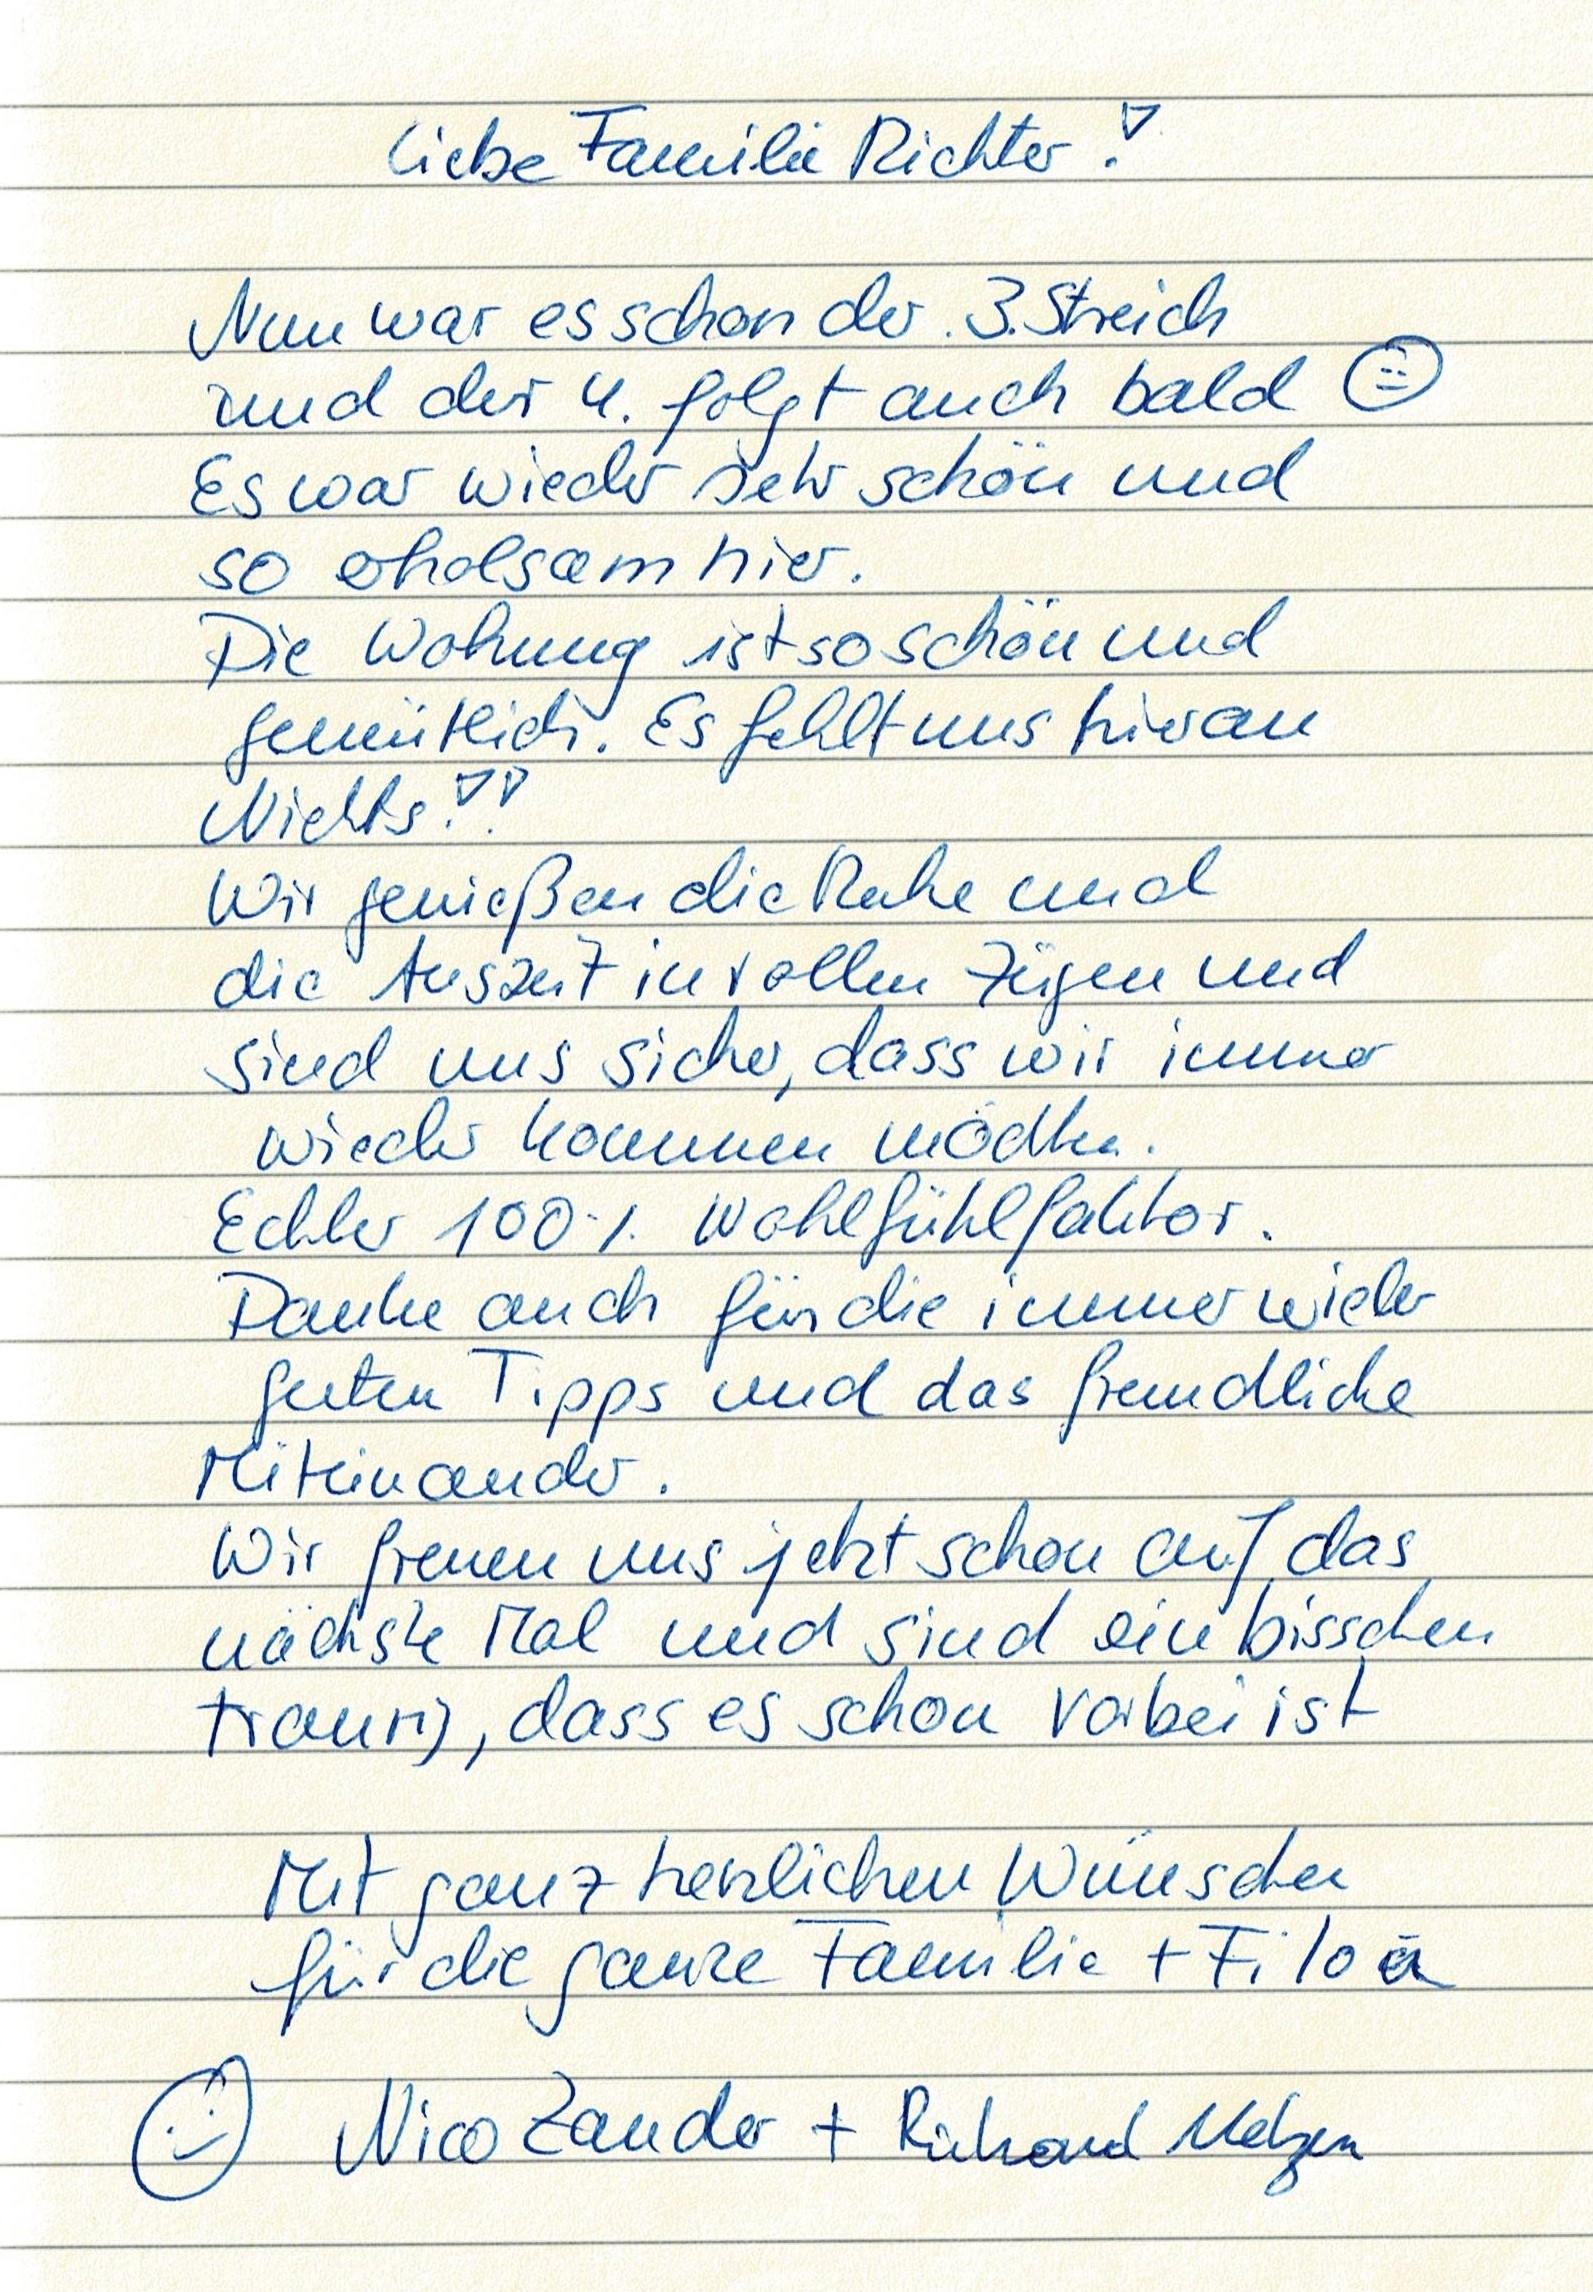 Liebe Familie Richter!
Nun war es schon der 3. Streich
und der 4. folgt auch bald
Es war wieder sehr schön und
so erholsam hier.
Die Wohnung ist so schön und
gemütlich. Es fehlt uns hier an
Nichts!!
Wir genießen die Ruhe und
die Auszeit in vollen Zügen und
sind uns sicher, dass wir immer
wieder kommen möchten.
Echter 100% Wohlfühlfaktor.
Danke auch für die immer wieder
guten Tipps und das freundliche
Miteinander.
Wir freuen uns jetzt schon auf das
nächste Mal und sind ein bisschen
traurig, dass es schon vorbei ist
Mit ganz herzlichen Wünschen
für die ganze Familie +
Nico Zander + Richard